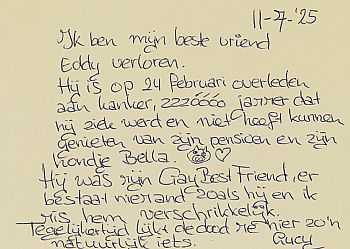 11-7-'25
Ik ben mijn beste vriend
Eddy verloren.
Hij is op 24 februari overleden
aan kanker, zzzóóóó jammer dat
hij ziek werd en niet heeft kunnen
genieten van zijn pensioen en zijn
hondje Bella.
Hij was mijn Gay Best Friend, er
bestaat niemand zoals hij en ik
mis hem verschrikkelijk.
Tegelijkertijd lijkt de dood me hier zo'n
natuurlijk iets.
Lucy